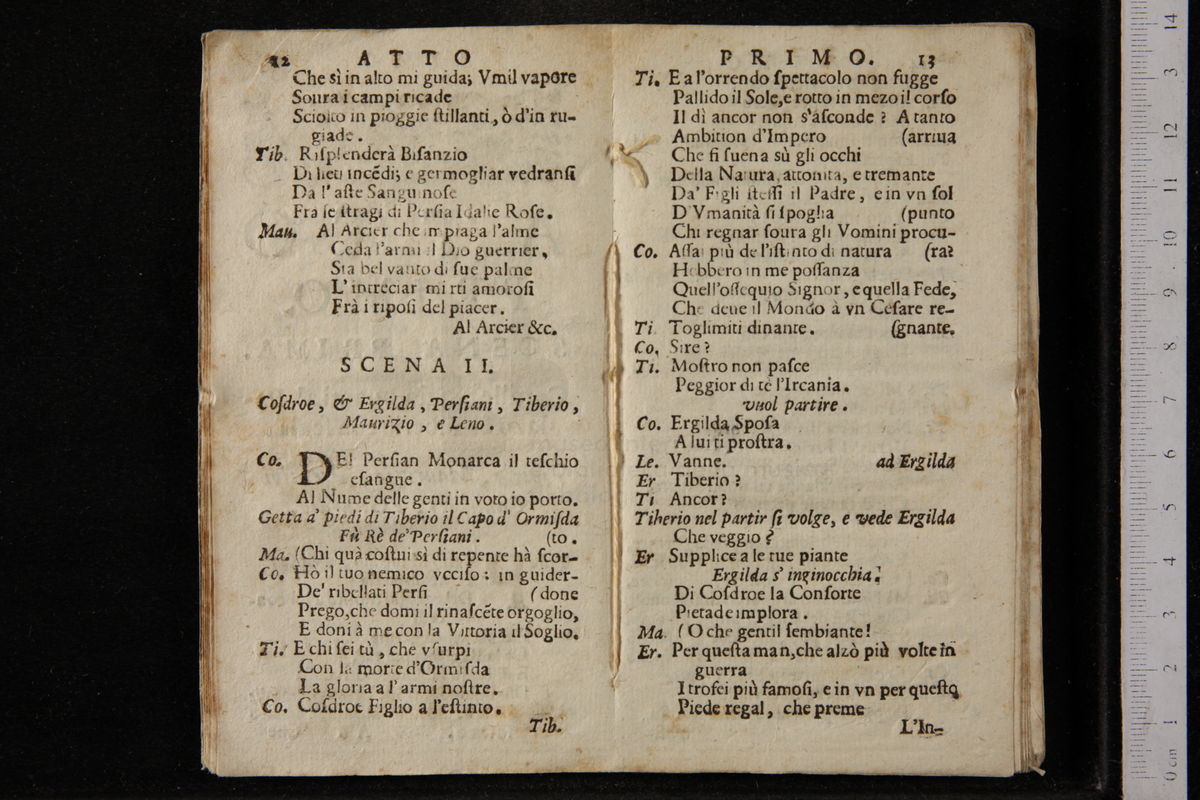 12 ATTO
Che sì in alto mi guida; Vmil vapore
Soura i campi ricade
Sciolto in pioggie ſtillanti, ò d'in ru-
giade.
Tib. Riſplenderà Biſanzio
Di lieti incẽdi; e germogliar vedranſi
Da l'aſte Sanguinoſe
Fra le ſtragi di Perſia Idalie Roſe.
Mau. Al Arcier che impiaga l'alme
Ceda l'armi il Dio guerrier,
Sia bel vanto di ſue palme
L'intreciar mirti amoroſi
Frà i ripoſi del piacer.
Al Arcier &c.
SCENA II.
Coſdroe, & Ergilda, Perſiani, Tiberio,
Maurizio, e Leno.
Co. DEl Perſian Monarca il teſchio
eſangue.
Al Nume delle genti in voto io porto.
Getta a' piedi di Tiberio il Capo d'Ormiſda
Fù Rè de' Perſiani. (to.
Ma. (Chi quà coſtui sì di repente hà ſcor-
Co. Hò il tuo nemico vcciſo: in guider-
De' ribellati Perſi (done
Prego, che domi il rinaſcẽte orgoglio,
E doni à me con la Vittoria il Soglio.
Ti. E chi ſei tù, che vſurpi
Con la morte d'Ormiſda
La gloria a l'armi noſtre.
Co. Coſdroe Figlio a l'eſtinto.
Tib.
PRIMO. 13
Ti. E a l'orrendo ſpettacolo non fugge
Pallido il Sole, e rotto in mezo il corſo
Il dì ancor non s'aſconde? A tanto
Ambition d'Impero (arriua
Che ſi ſuena sù gli occhi
Della Natura, attonita, e tremante
Da' Figli ſteſſi il Padre, e in vn ſol
D'Vmanità ſi ſpoglia (punto
Chi regnar ſoura gli Vomini procu-
Co. Aſſai più de l'iſtinto di natura (ra?
Hebbero in me poſſanza
Quell'oſſequio Signor, e quella Fede,
Che deue il Mondo à vn Ceſare re-
Ti. Toglimiti dinante. (gnante.
Co. Sire?
Ti. Moſtro non paſce
Peggior di te l'Ircania.
vuol partire.
Co. Ergilda Spoſa
A lui ti proſtra.
Le. Vanne. ad Ergilda
Er Tiberio?
Ti Ancor?
Tiberio nel partir ſi volge, e vede Ergilda
Che veggio?
Er Supplice a le tue piante
Ergilda s'inginocchia.
Di Coſdroe la Conſorte
Pietade implora.
Ma. (O che gentil ſembiante!
Er. Per queſta man, che alzò più volte in
guerra
I trofei più famoſi, e in vn per queſto
Piede regal, che preme
L'In-